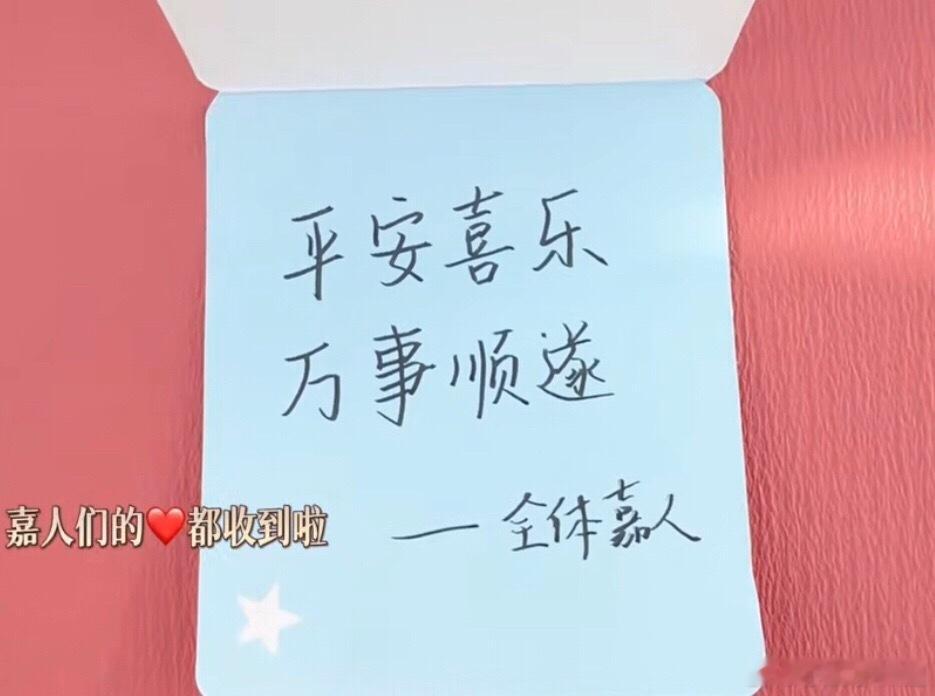 平安喜乐
万事顺遂
嘉人们的❤️都收到啦
— 全体嘉人